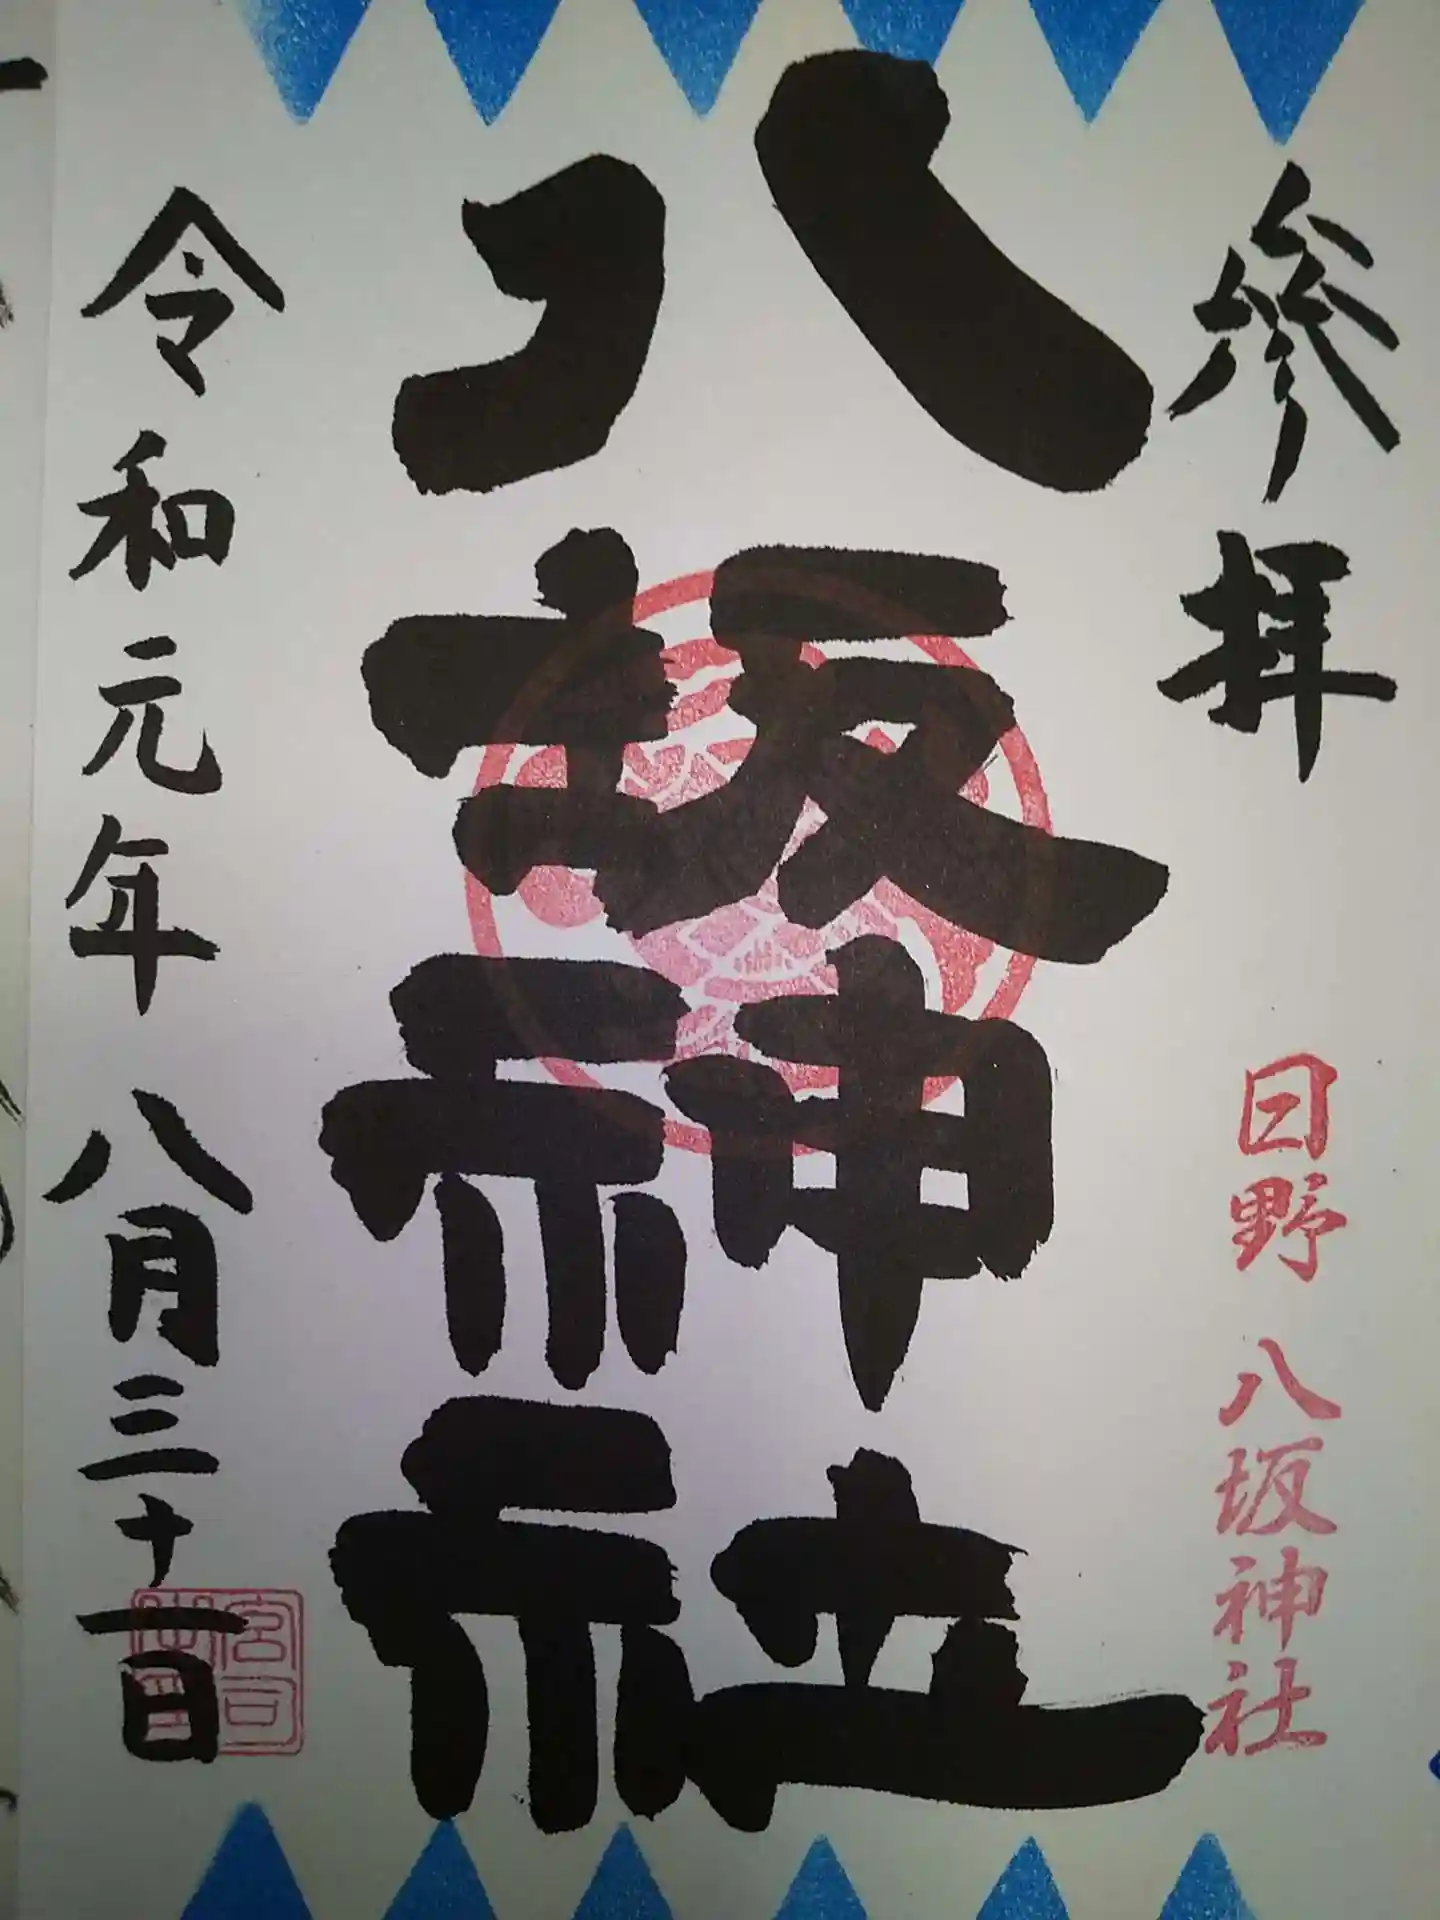 参拝
日野 八坂神社
八坂神社
令和元年 八月三十一日
宮司